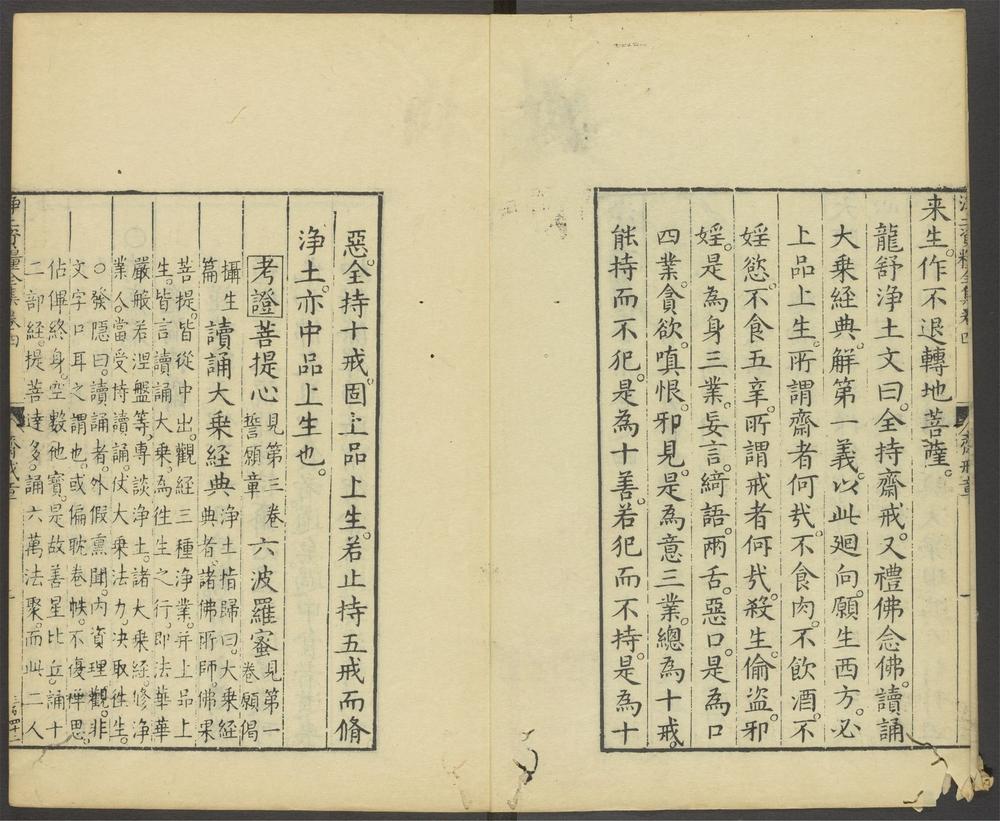 来生。作不退轉地菩薩。
龍舒淨土文曰。全持齋戒。又禮佛念佛。讀誦
大乗経典。解第一義。以此廻向。願生西方。必
上品上生。所謂齋者何㢤。不食肉。不飲酒。不
婬慾。不食五辛。所謂戒者何㢤。殺生。偷盗。邪
婬。是為身三業。妄言。綺語。兩舌。惡口。是為口
四業。貪欲。嗔恨。邪見。是為意三業。總為十戒。
能持而不犯。是為十善。若犯而不持。是為十
惡。全持十戒。固上品上生。若止持五戒而脩
淨土。亦中品上生也。
考證菩提心 見第三卷誓願章 六波羅蜜 見第一卷願偈
攝生篇 讀誦大乗経典 淨土指歸曰。大乗経典者。諸佛所師。佛果
菩提。皆從中出。觀経三種淨業。并上品上
生。皆言讀誦大乗。為徃生之行。即法華華
嚴般若涅盤等。專談淨土。諸大乗経。修淨
業人。當受持讀誦。仗大乗法力。决取徃生。
○發隱曰。讀誦者。外假熏聞。内資理觀。非
文字口耳之謂也。或偏耽卷帙。不復禅思。
佔㑆終身。空數他寶。是故善星比丘。誦十
二部経。提菩達多。誦六萬法聚。而此二人
淨土資糧全集卷四 齋戒章